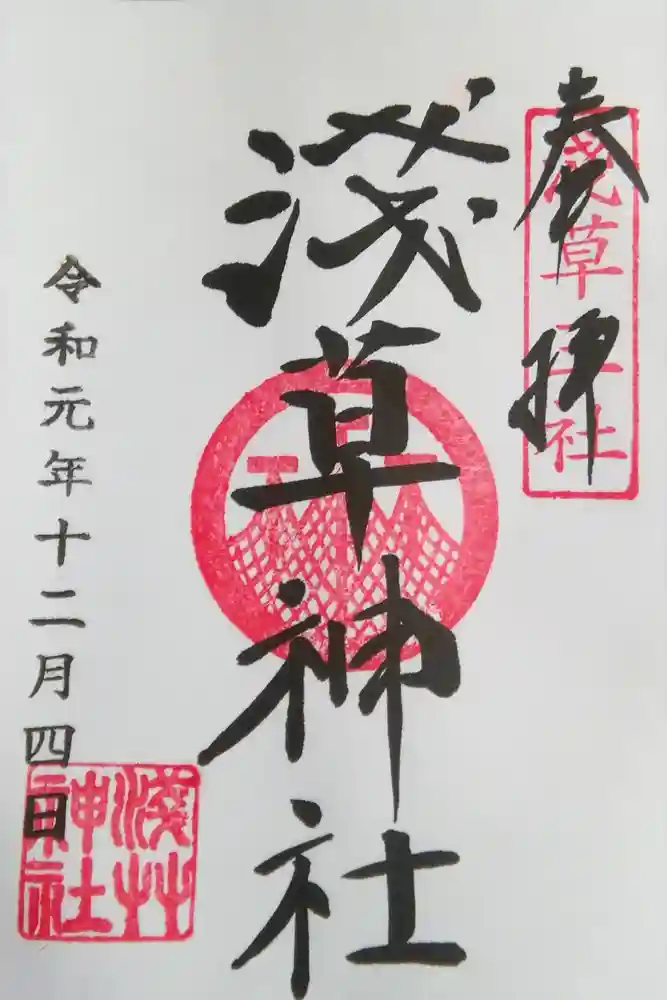 奉拝
浅草三社
浅草神社
令和元年十二月四日
淺草神社